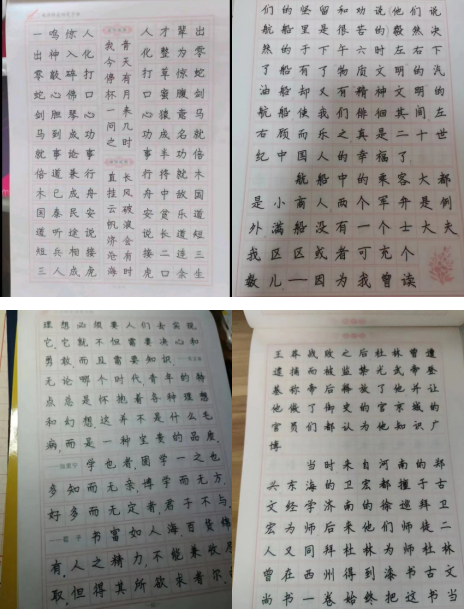 一鸣惊人
出神入化
零敲碎打
蛇心佛口
剑胆琴心
马到成功
就事论事
倍道兼行
木已成舟
国泰民安
道听途说
短兵相接
三人成虎
青天有月来几时
我今停杯一问之
长风破浪会有时
直挂云帆济沧海
人才辈出
化整为零
打草惊蛇
口蜜腹剑
心猿意马
功成名就
事半功倍
行将就木
舟中敌国
安贫乐道
说长道短
接二连三
虎口余生
们的坚留和劝说他们说
航船里是很苦的毅然决
然的于下午六时左右下
了船有了物质文明的汽
油船却又有精神文明的
航船使我们徘徊其间左
右顾而乐之真是二十世
纪中国人的幸福了
航船中的乘客大都
是小商人两个军弁是例
外满船没有一个士大夫
我区区或者可充个
数儿——因为我曾读
理想必须要人们去实现
它,它就不但需要决心和
勇敢而且需要知识
无论哪个时代青年的特
点总是怀抱着各种理想
和幻想这并不是什么毛
病,而是一种宝贵的品质,
学也者,固学一之也
多知而无亲,博学而无方,
好多而无定者君子不与,
——荀子 书富如入海百货
有,人之精力,不能兼收尽
取,但得其所欲求者尔,
王莽战败之后杜林曾遭
逮捕而被监禁光武帝登
基称帝后释放了他并让
他做了御史的官京城的
官员们都认为他知识广
博
当时来自河南的郑
兴东海的卫宏都擅于古
文经学济南的徐巡拜卫
宏为师后来他们师徒二
人又同拜杜林为师杜林
曾在西州得到漆书古文
尚书一卷始终把这书当